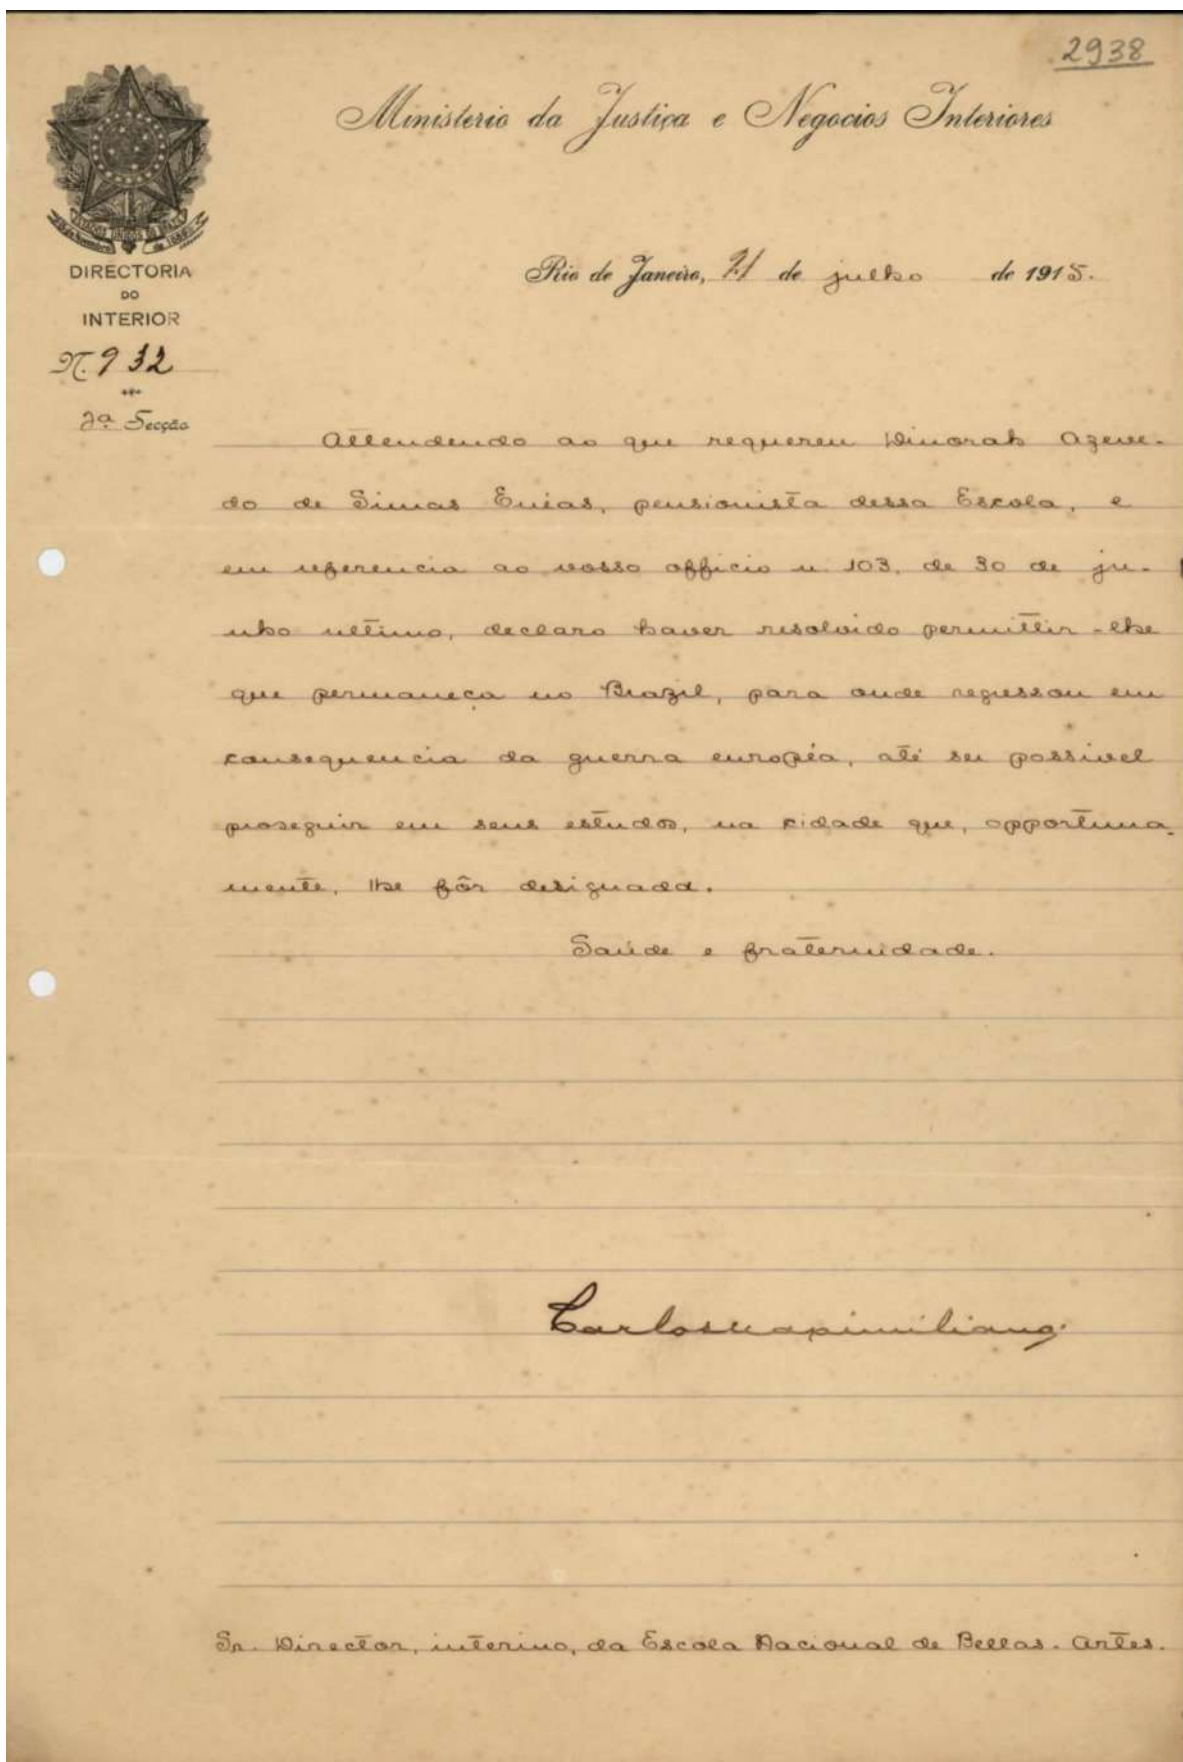 2938
Ministerio da Justiça e Negocios Interiores
ESTADOS UNIDOS DO BRAZIL
15 de Novembro de 1889
DIRECTORIA
DO
INTERIOR
N. 932
2ª Secção
Rio de Janeiro, 21 de julho de 1915.
Attendendo ao que requereu Dinorah Azeve-
do de Simas Enéas, pensionista dessa Escola, e
em referencia ao vosso officio n. 103, de 30 de ju-
nho ultimo, declaro haver resolvido permittir-lhe
que permaneça no Brazil, para onde regressou em
consequencia da guerra européa, até ser possivel
proseguir em seus estudos, na cidade que, opportuna-
mente, lhe fôr designada.
Saúde e fraternidade.
Carlos Maximiliano.
Sr. Director, interino, da Escola Nacional de Bellas-Artes.